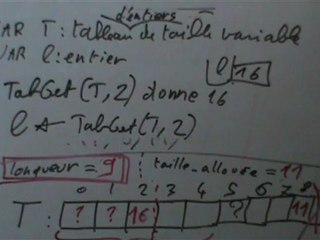 d'entiers
VAR T: tableau de taille variable
VAR l: entier
l 16
TabGet(T,2) donne 16
l ← TabGet(T,2)
longueur = 9 taille_allouée = 11
0 1 2 3 4 5 6 7 8
T: ? ? 16 ? 11